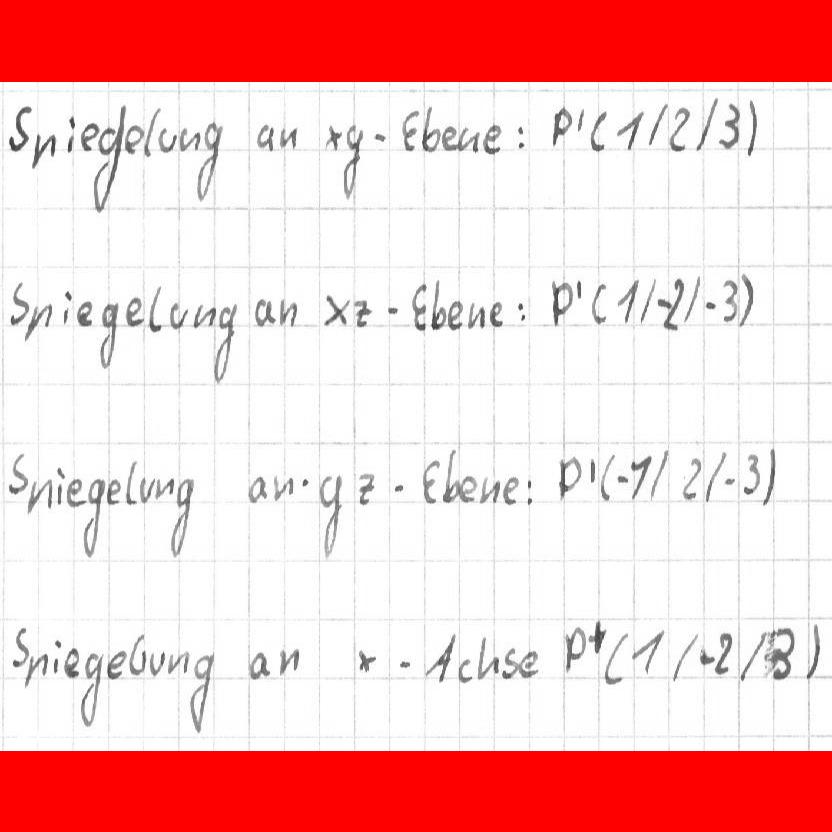 Spiegelung an xy-Ebene: P'(1/2/3)
Spiegelung an xz-Ebene: P'(1/-2/-3)
Spiegelung an yz-Ebene: P'(-1/2/-3)
Spiegelung an x-Achse P'(1/-2/3)